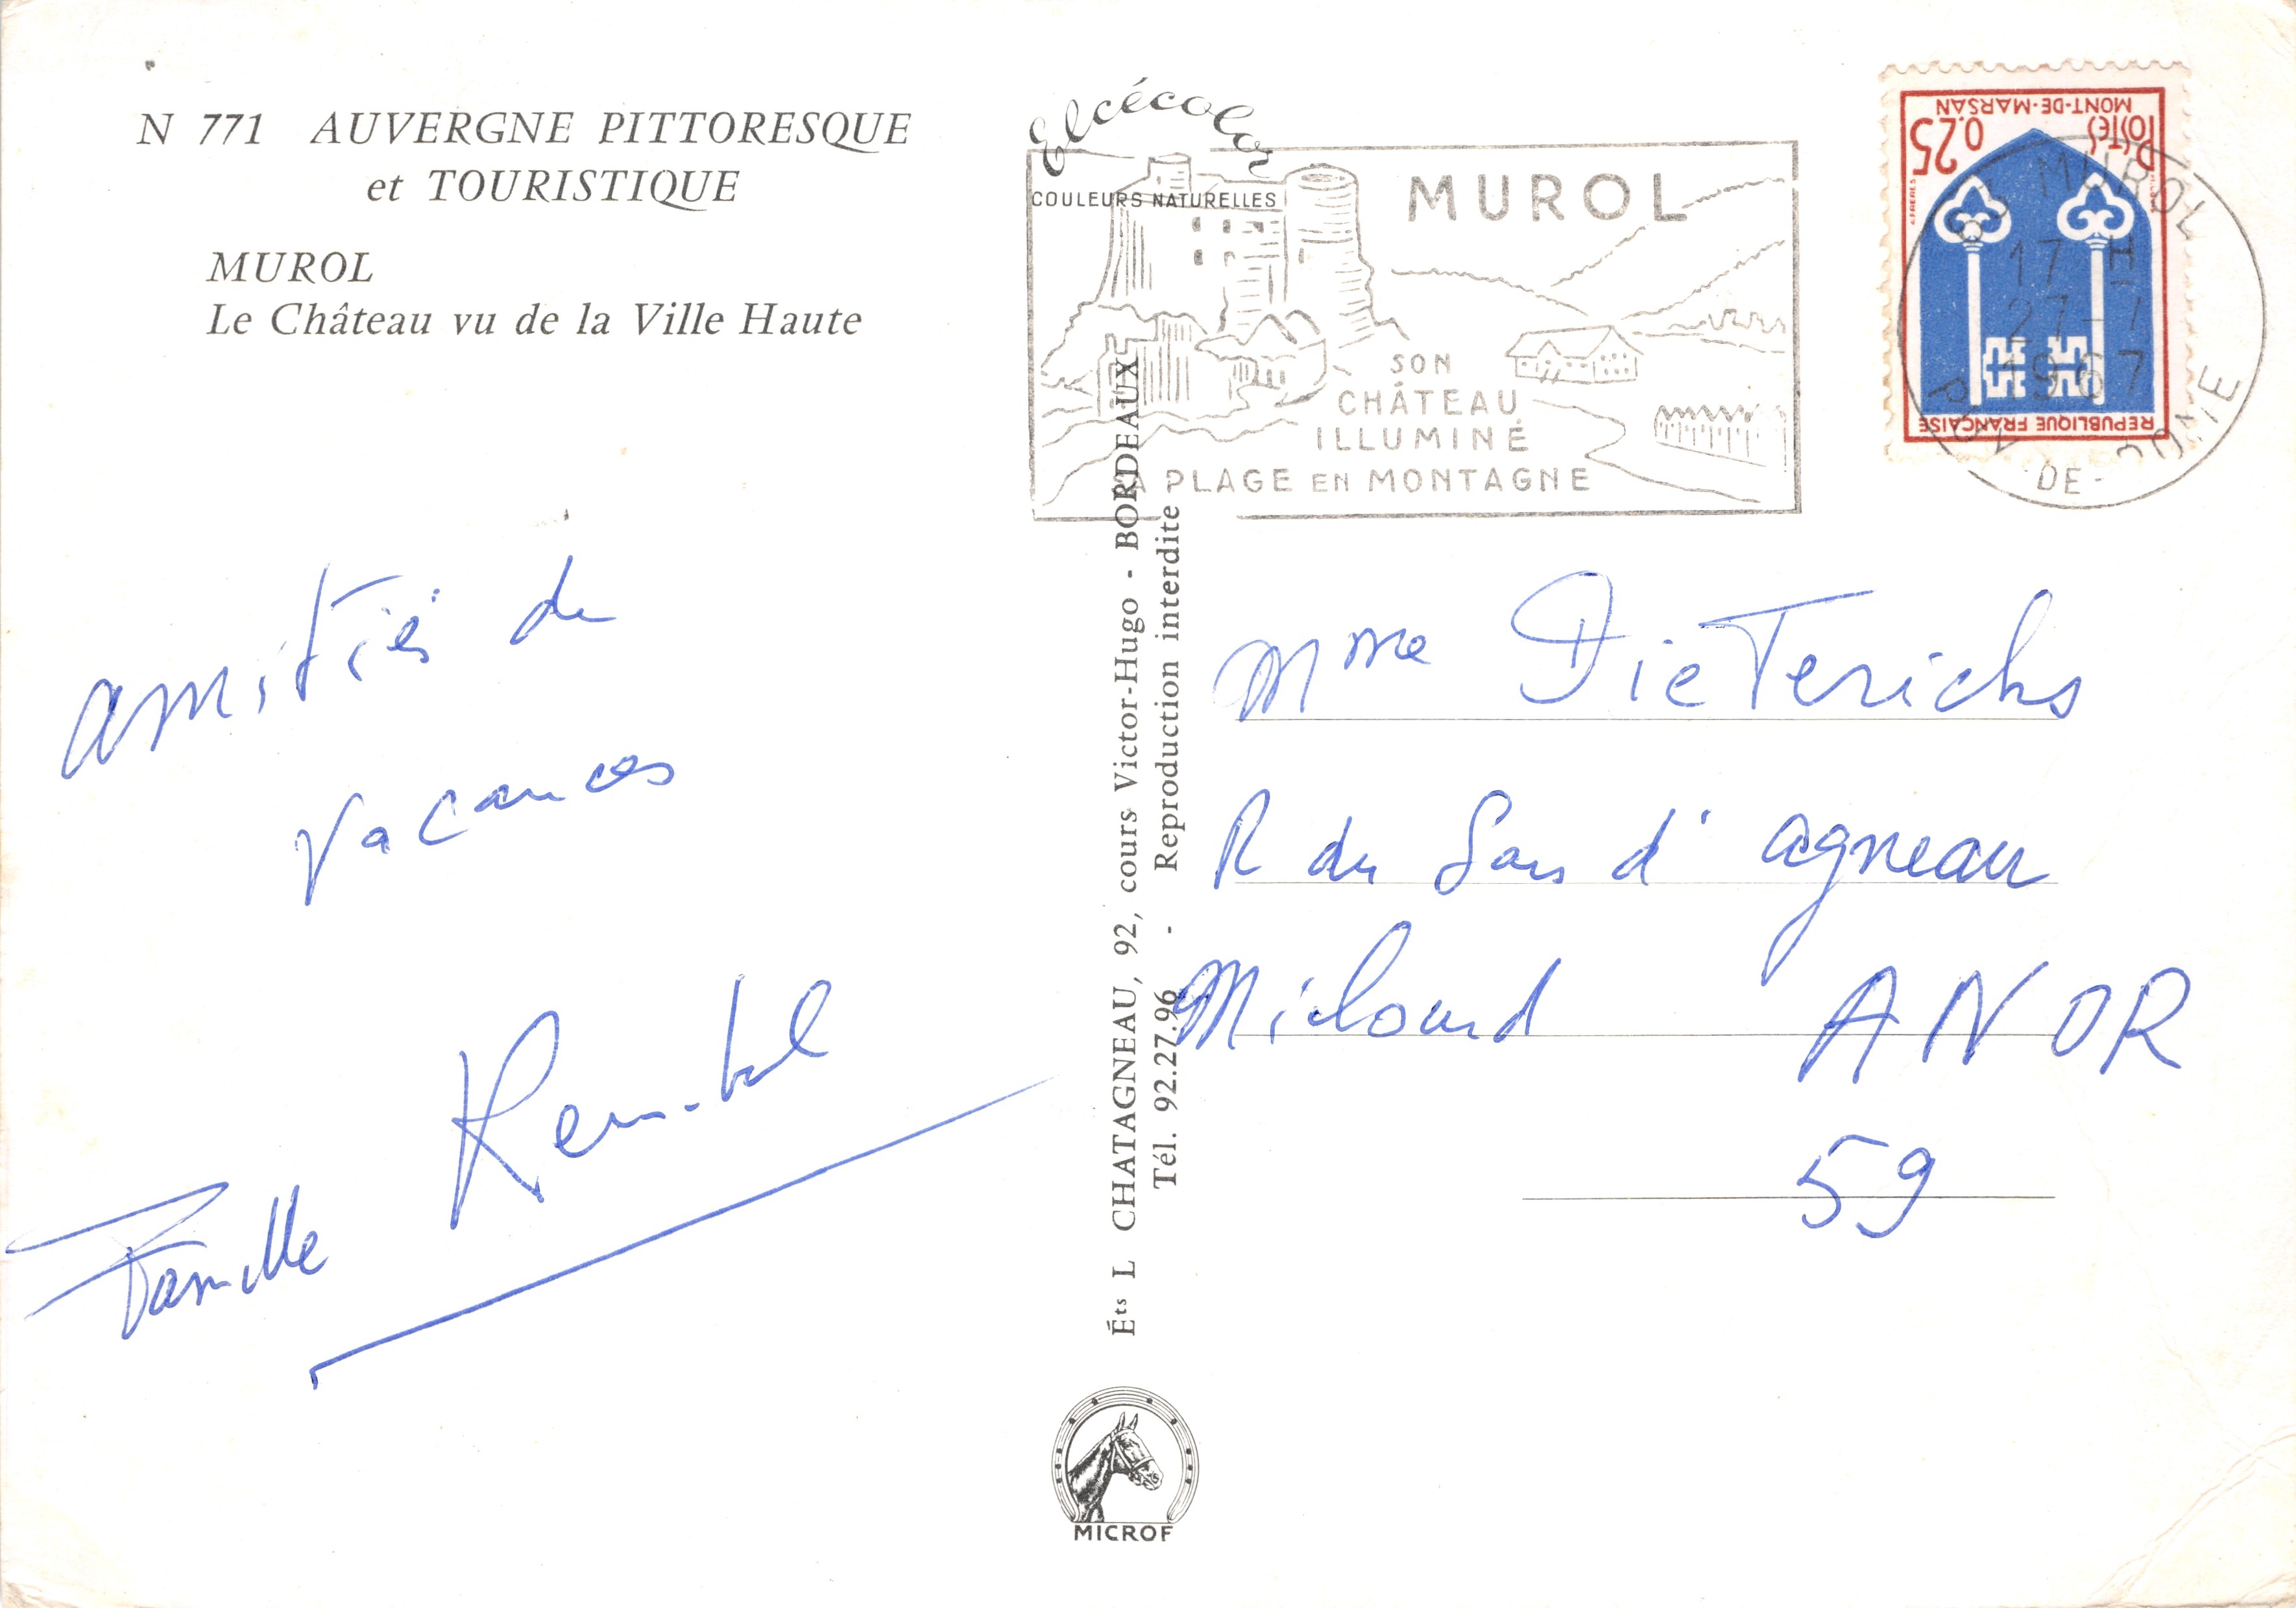 N 771 AUVERGNE PITTORESQUE
et TOURISTIQUE
MUROL
Le Château vu de la Ville Haute
Elcécolor
COULEURS NATURELLES
MUROL
SON
CHÂTEAU
ILLUMINÉ
PLAGE EN MONTAGNE
0.25
POSTES
MONT-DE-MARSAN
REPUBLIQUE FRANÇAISE
63 MUROL
17 H
27-7
1967
PUY-DE-DOME
amitiés de
vacances
Famille
Éts L CHATAGNEAU, 92, cours Victor-Hugo - BORDEAUX
Tél. 92.27.96 - Reproduction interdite
Mme Dieterichs
R du d'agneau
Milourd ANOR
59
MICROF